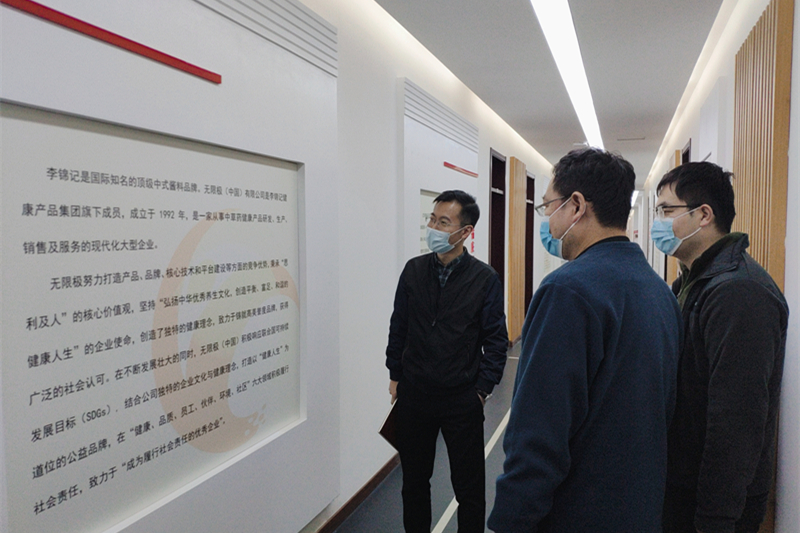 李锦记是国际知名的顶级中式酱料品牌，无限极（中国）有限公司是李锦记健
康产品集团旗下成员，成立于 1992 年，是一家从事中草药健康产品研发、生产、
销售及服务的现代化大型企业。
无限极努力打造产品、品牌、核心技术和平台建设等方面的竞争优势，秉承“思
利及人”的核心价值观，坚持“弘扬中华优秀养生文化，创造平衡、富足、和谐的
健康人生”的企业使命，创造了独特的健康理念，致力于铸就高美誉度品牌，获得
广泛的社会认可。在不断发展壮大的同时，无限极（中国）积极响应联合国可持续
发展目标（SDGs），结合公司独特的企业文化与健康理念，打造以“健康人生”为
道位的公益品牌，在“健康、品质、员工、伙伴、环境、社区”六大领域积极履行
社会责任，致力于“成为履行社会责任的优秀企业”。